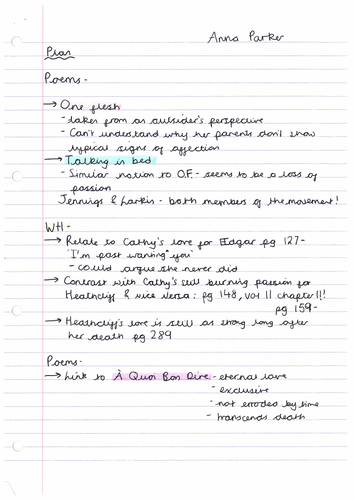 Anna Parker
Plan
Poems -
→ One flesh
- taken from an outsider's perspective
- Can't understand why her parents don't show
typical signs of affection
→ Talking in bed
- Similar notion to O.F. - seems to be a loss of
passion
Jennings & Larkin - both members of the movement!
WH -
→ Relate to Cathy's love for Edgar pg 127 -
"I'm past wanting you"
- could argue she never did
→ Contrast with Cathy's still burning passion for
Heathcliff & vice versa: pg 148, vol II chapter II!
pg 159 -
→ Heathcliff's love is still as strong long after
her death pg 289
Poems -
→ Link to À Quoi Bon Dire - eternal love
- exclusive
- not eroded by time
- transcends death